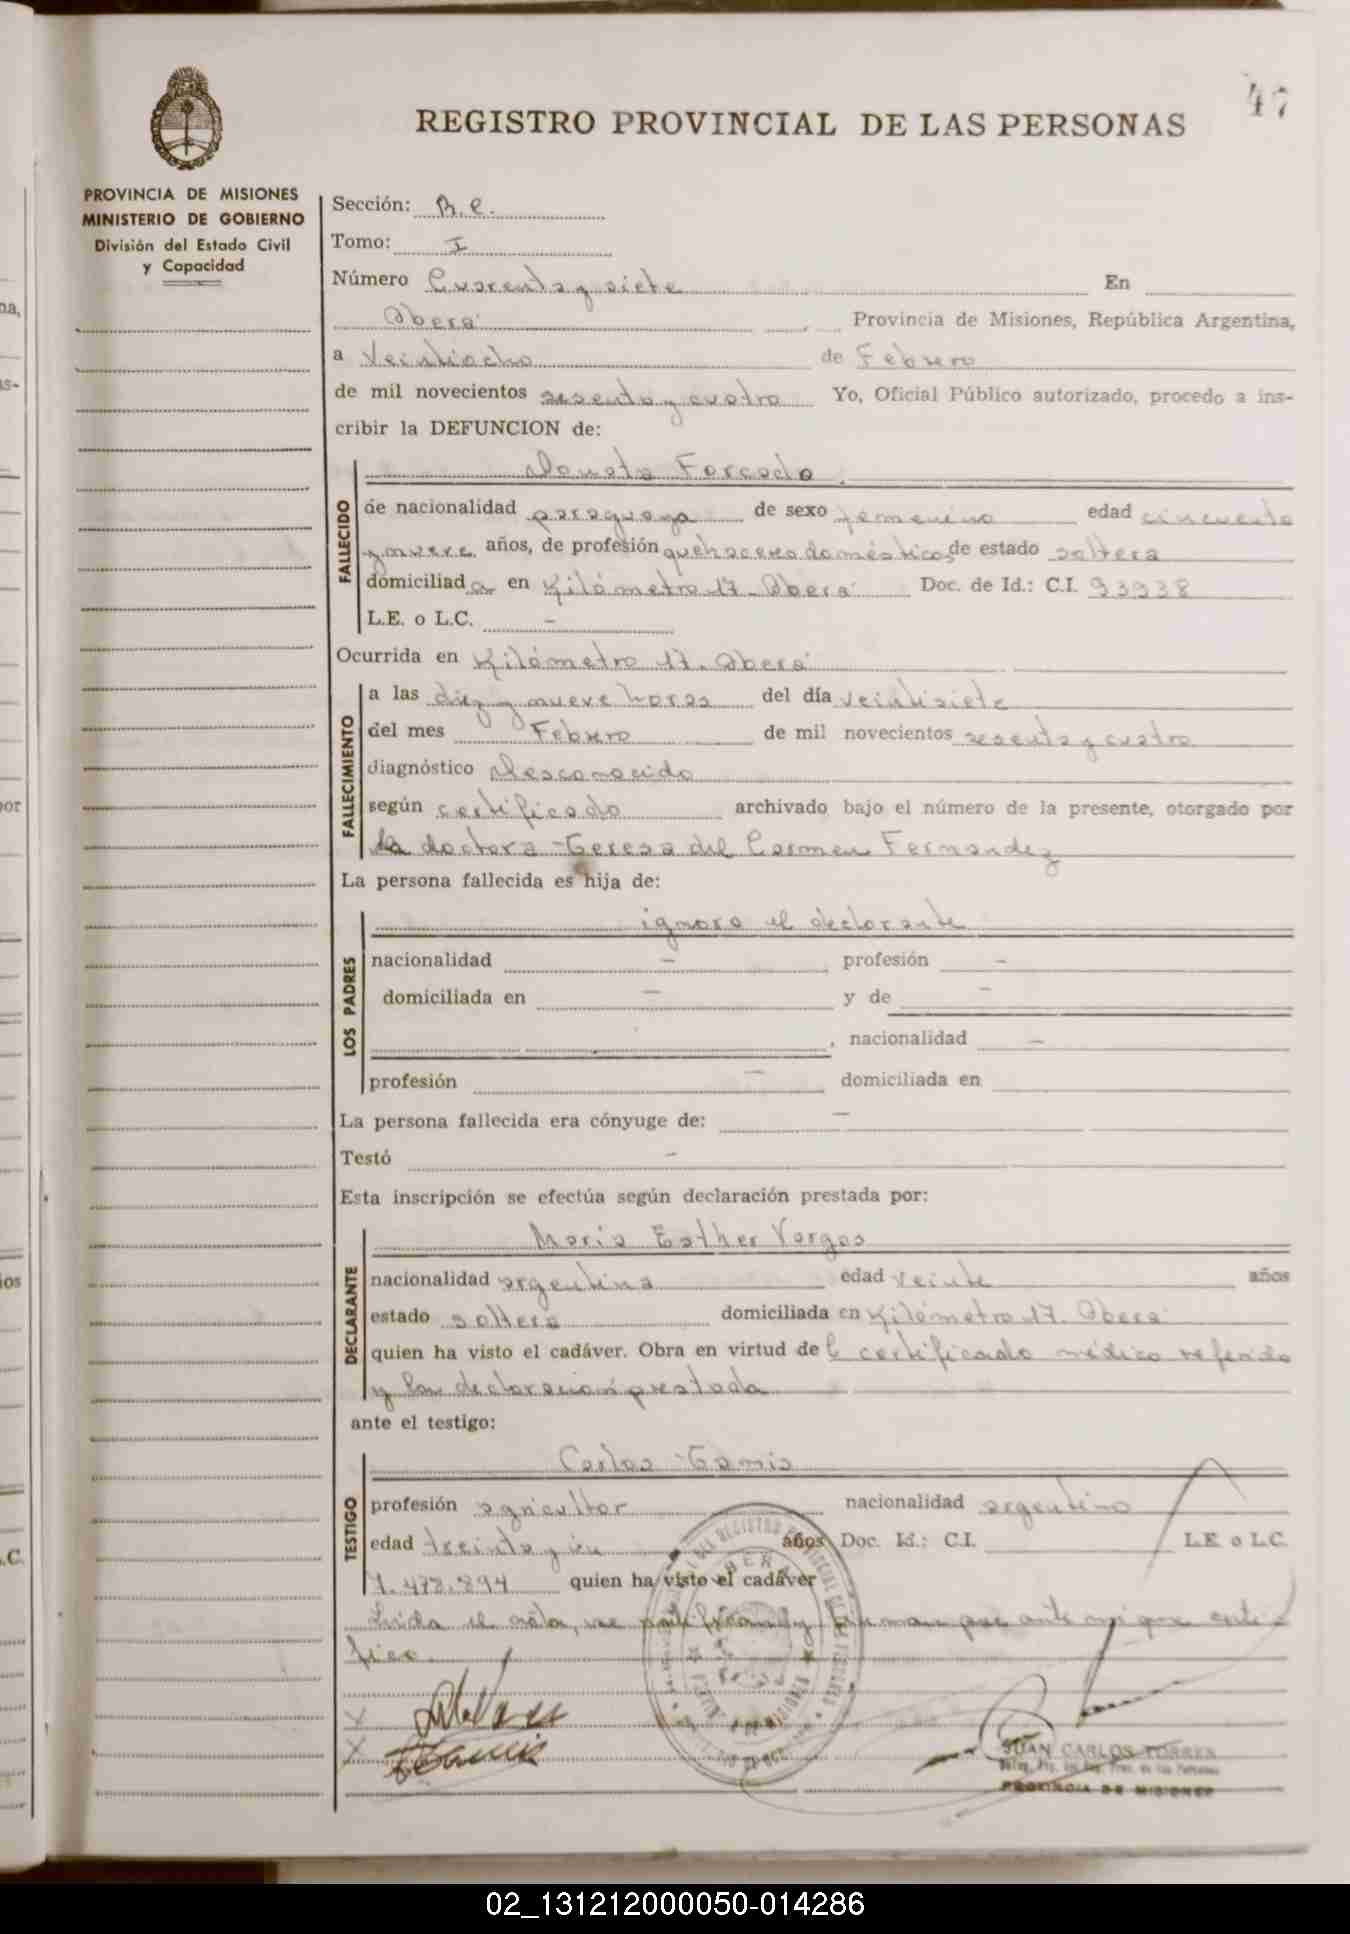 47
REGISTRO PROVINCIAL DE LAS PERSONAS
PROVINCIA DE MISIONES
MINISTERIO DE GOBIERNO
División del Estado Civil
y Capacidad
Sección: R.C.
Tomo: I
Número Cuarenta y siete En
Oberá Provincia de Misiones, República Argentina,
a Veintiocho de Febrero
de mil novecientos sesenta y cuatro Yo, Oficial Público autorizado, procedo a ins-
cribir la DEFUNCION de:
FALLECIDO
Donata Forcado
de nacionalidad paraguaya de sexo femenino edad cincuenta
y nueve años, de profesión quehaceres domésticos de estado soltera
domiciliada en Kilómetro 17. Oberá Doc. de Id.: C.I. 93938
L.E. o L.C. -
Ocurrida en Kilómetro 17. Oberá
FALLECIMIENTO
a las diez y nueve horas del día veintisiete
del mes Febrero de mil novecientos sesenta y cuatro
diagnóstico Desconocido
según certificado archivado bajo el número de la presente, otorgado por
la doctora Teresa del Carmen Fernandez
La persona fallecida es hija de:
LOS PADRES
ignora el declarante
nacionalidad - profesión -
domiciliada en - y de -
, nacionalidad -
profesión - domiciliada en
La persona fallecida era cónyuge de: -
Testó -
Esta inscripción se efectúa según declaración prestada por:
DECLARANTE
Maria Esther Vargas
nacionalidad argentina edad veinte años
estado soltera domiciliada en Kilómetro 17. Oberá
quien ha visto el cadáver. Obra en virtud del certificado médico referido
y la declaración prestada
ante el testigo:
TESTIGO
Carlos Gamis
profesión agricultor nacionalidad argentino
edad treinta y un años Doc. Id.: C.I. L.E o L.C.
7.478.894 quien ha visto el cadáver
Leida el acta, se ratifican y firman por ante mi que certi-
fico.
X
X
JUAN CARLOS TORRES
PROVINCIA DE MISIONES
02_131212000050-014286